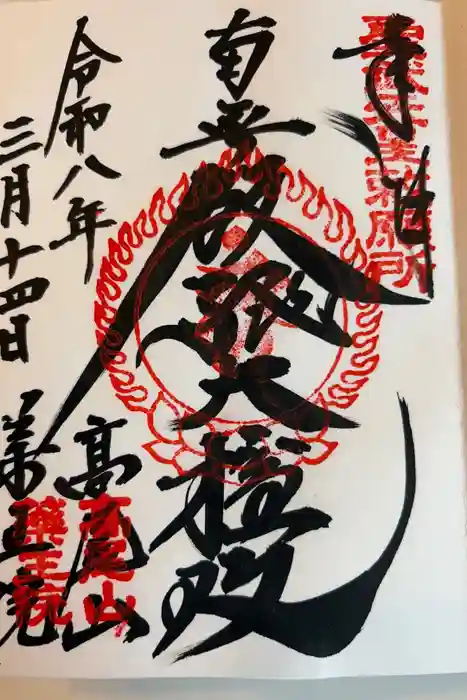 奉拝
聖武天皇勅願所
南無飯縄大権現
令和八年
三月十四日
高尾山
高尾山
薬王院
薬王院